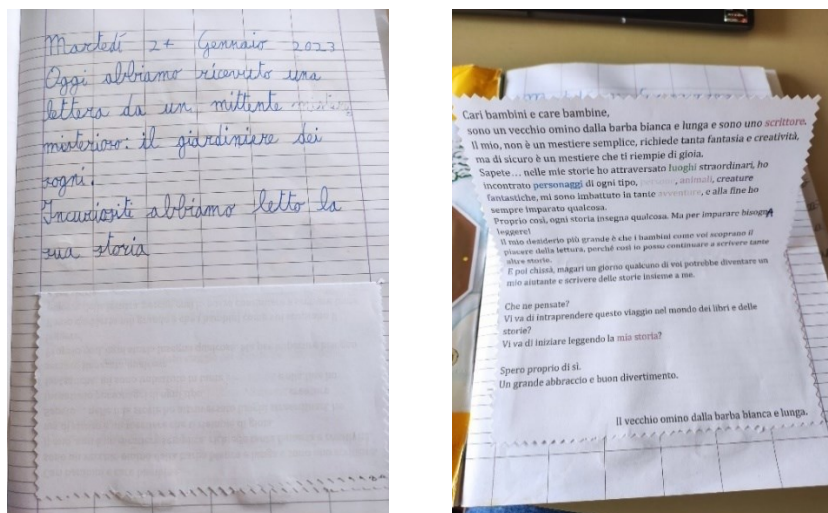 Martedì 24 Gennaio 2023
Oggi abbiamo ricevuto una
lettera da un mittente
misterioso: il giardiniere dei
sogni.
Incuriositi abbiamo letto la
sua storia
Cari bambini e care bambine,
sono un vecchio omino dalla barba bianca e lunga e sono uno scrittore.
Il mio, non è un mestiere semplice, richiede tanta fantasia e creatività,
ma di sicuro è un mestiere che ti riempie di gioia.
Sapete... nelle mie storie ho attraversato luoghi straordinari, ho
incontrato personaggi di ogni tipo, persone, animali, creature
fantastiche, mi sono imbattuto in tante avventure, e alla fine ho
sempre imparato qualcosa.
Proprio così, ogni storia insegna qualcosa. Ma per imparare bisognA
leggere!
Il mio desiderio più grande è che i bambini come voi scoprano il
piacere della lettura, perché così io posso continuare a scrivere tante
altre storie.
E poi chissà, magari un giorno qualcuno di voi potrebbe diventare un
mio aiutante e scrivere delle storie insieme a me.
Che ne pensate?
Vi va di intraprendere questo viaggio nel mondo dei libri e delle
storie?
Vi va di iniziare leggendo la mia storia?
Spero proprio di sì.
Un grande abbraccio e buon divertimento.
Il vecchio omino dalla barba bianca e lunga.